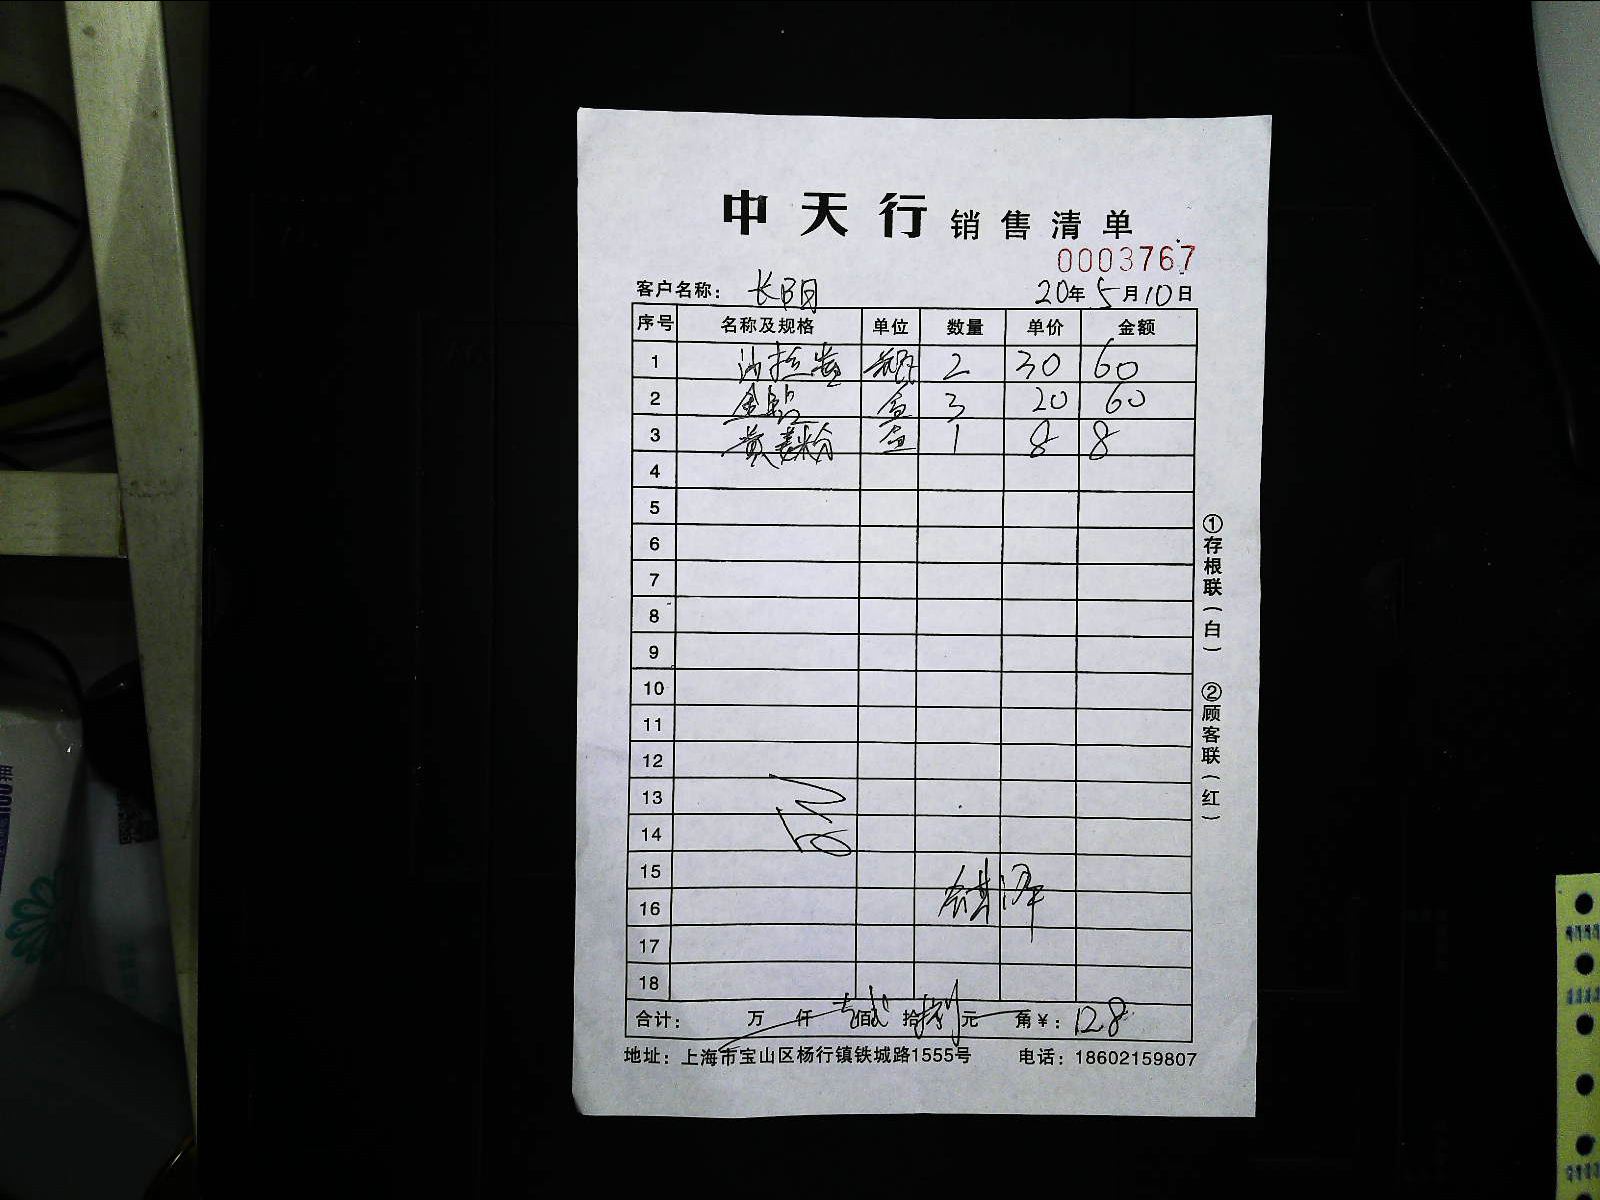 中天行 销售清单
0003767
客户名称： 长阳 20年5月10日
序号 名称及规格 单位 数量 单价 金额
1 沙拉酱 瓶 2 30 60
2 盒 3 20 60
3 黄姜粉 盒 1 8 8
4
5
6
7
8
9
10
11
12
13
14
15
16
17
18
合计： 万 仟 壹佰 贰拾 捌元 角 ¥：128
地址：上海市宝山区杨行镇铁城路1555号 电话：18602159807
①存根联（白） ②顾客联（红）